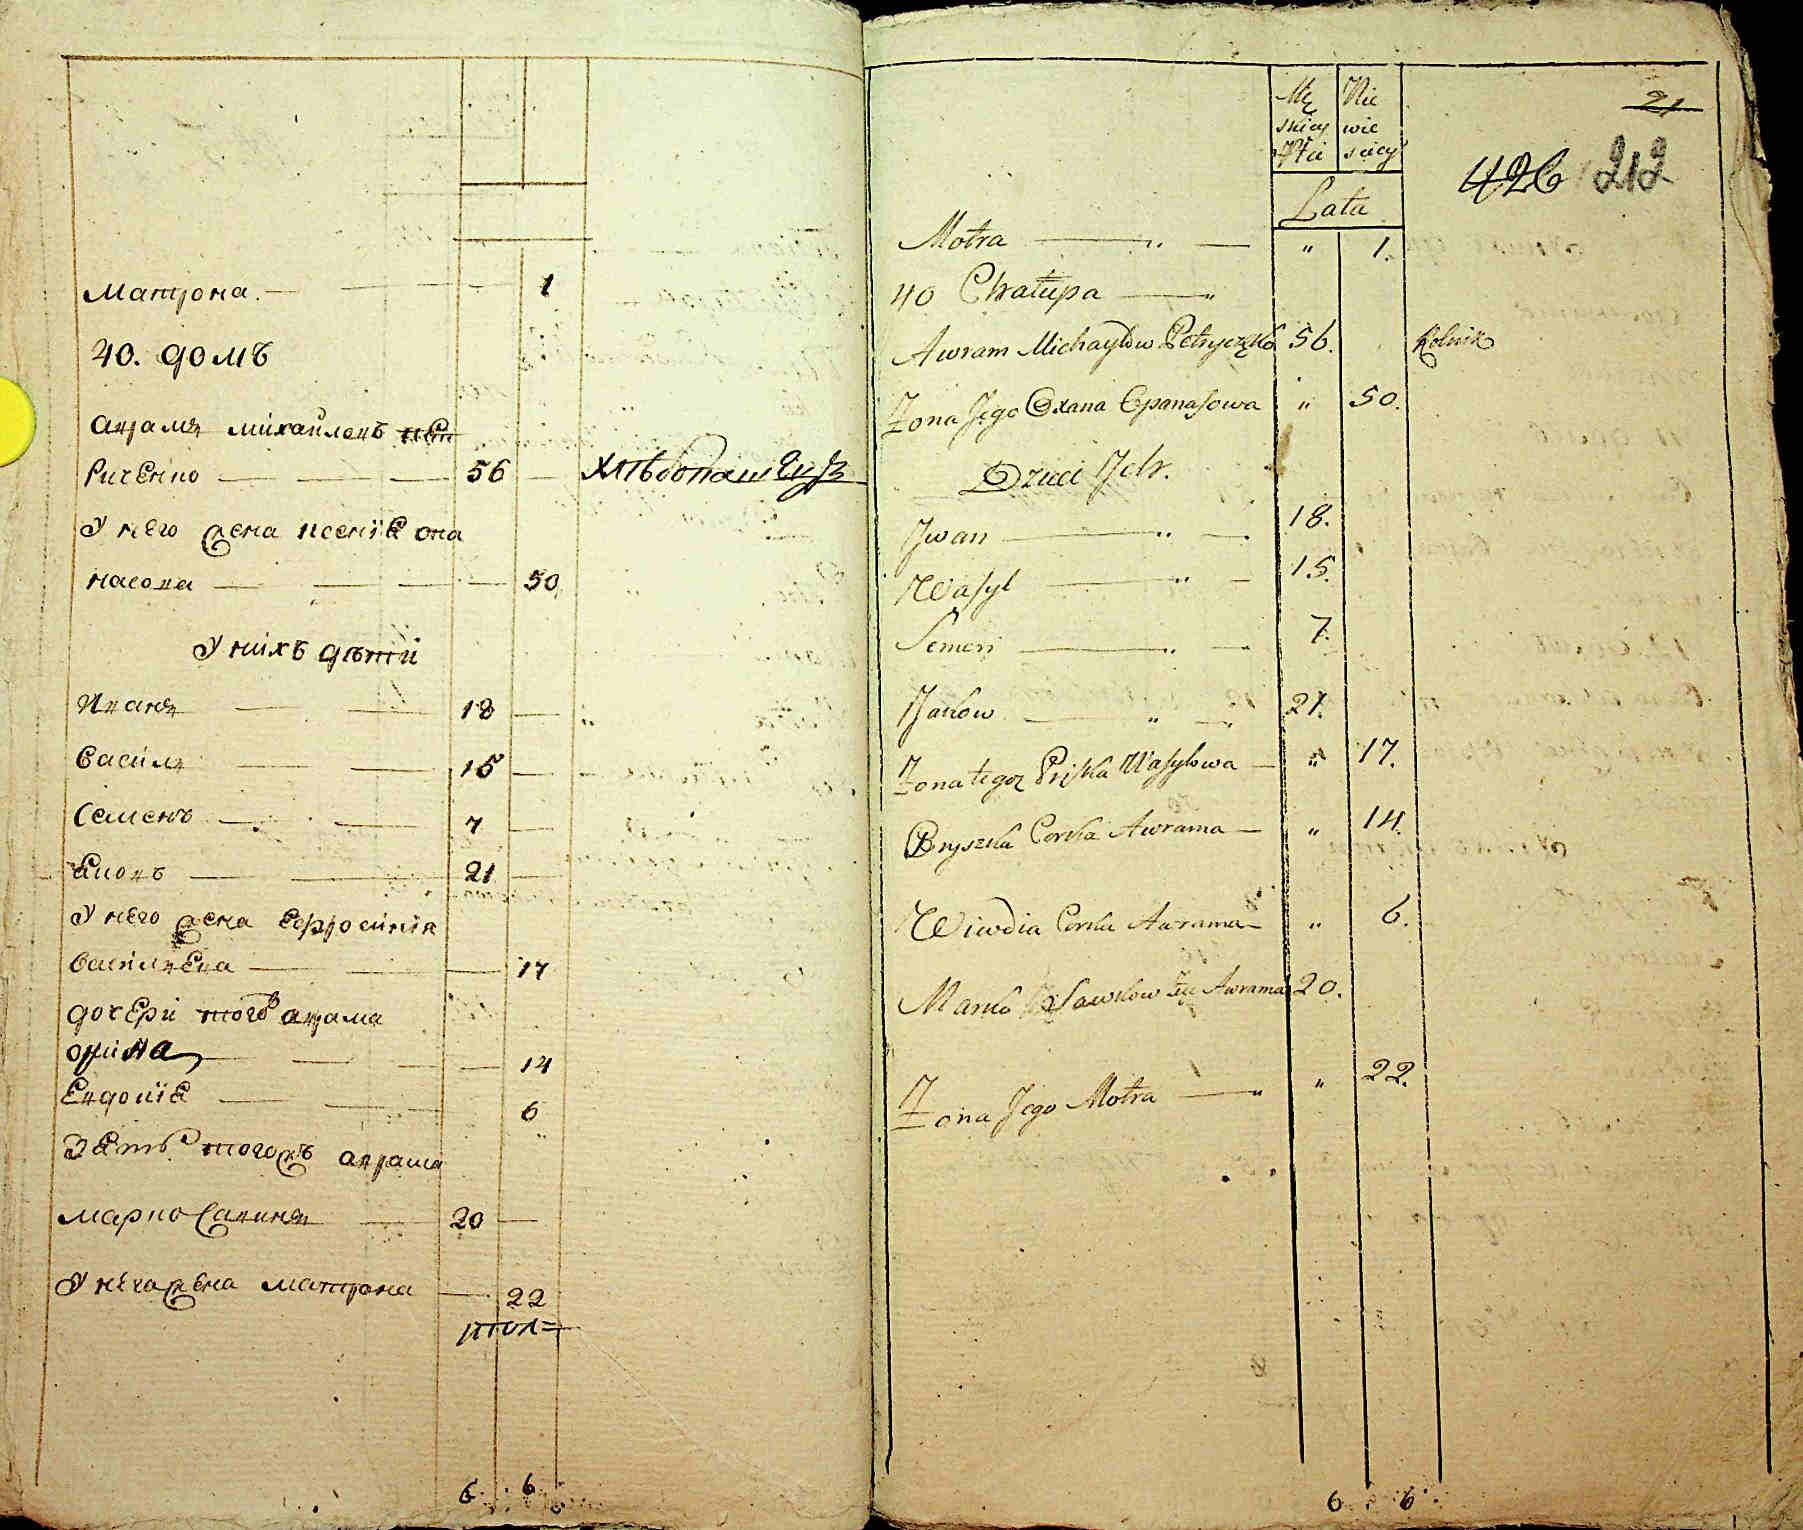 Матрона 1
40. домъ
Аврамъ михайловъ пет
риченко 56 хлѣбопашецъ
У него жена ксенія опа
насова 50
У нихъ дѣти
Иванъ 18
Василь 15
Семенъ 7
Яковъ 21
У него жена Ефросинія
Васильева 17
дочери того аврама
орина 14
Евдокія 6
Зять тогожъ аврама
марко Савинъ 20
У него жена матрона 22
итол=
6 6
Mę Nie
skiey wie
Płci sciey
21
426 212
Lata
Motra " 1.
40 Chałupa
Awram Michayłow Petryczęko 56. Rolnik
Żona Jego Oxana Opanasowa " 50.
Dzieci Ich.
Jwan 18.
Wasyl 15.
Semen 7.
Jakow 21.
Żona tegoż Pryska Wasylowa " 17.
Oryszka Corka Awrama " 14.
Wiwdia Corka Awrama " 6.
Marko Sawkow Zięć Awrama 20.
Żona Jego Motra " 22.
6 6